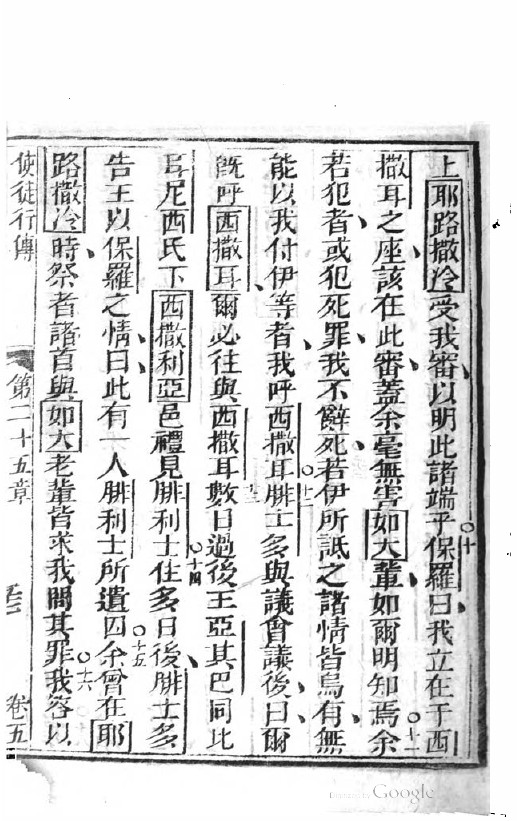 上耶路撒冷受我審以明此諸端乎○十保羅曰我立在于西
撒耳之座該在此審蓋余毫無害如大輩如爾明知焉○十一余
若犯者或犯死罪我不辭死若伊所詆之諸情皆烏有無
能以我付伊等者我呼西撒耳○十二腓士多與議會議後曰爾
旣呼西撒耳爾必往與西撒耳○十三數日過後王亞其巴同比
耳尼西氏下西撒利亞邑禮見腓利士○十四住多日後腓士多
告王以保羅之情曰此有一人腓利士所遺囚○十五余曾在耶
路撒冷時祭者諸首與如大老輩皆求我問其罪○十六我答以
使徒行傳 第二十五章 卷五
Google